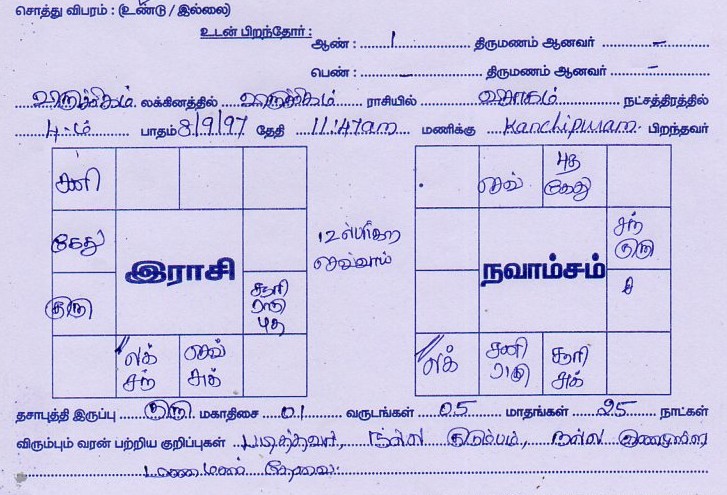 சொத்து விபரம் : (உண்டு / இல்லை)
உடன் பிறந்தோர் :
ஆண் : 1 திருமணம் ஆனவர் -
பெண் : - திருமணம் ஆனவர் -
விருச்சிகம் லக்கினத்தில் விருச்சிகம் ராசியில் விசாகம் நட்சத்திரத்தில்
4-ம் பாதம் 8/9/97 தேதி 11:47am மணிக்கு Kanchipuram. பிறந்தவர்
சனி
செவ்
புத
கேது
கேது
12ல்
செவ்வாய்
சந்
குரு
இராசி
நவாம்சம்
குரு
சூரி
ராகு
புத
லக்
சந்
செவ்
சுக்
லக்
சனி
ராகு
சூரி
சுக்
தசாபுத்தி இருப்பு குரு மகாதிசை 01 வருடங்கள் 05 மாதங்கள் 25 நாட்கள்
விரும்பும் வரன் பற்றிய குறிப்புகள் படித்தவர், நல்ல குடும்பம், நல்ல குணமுள்ள
மணமகன் தேவை.